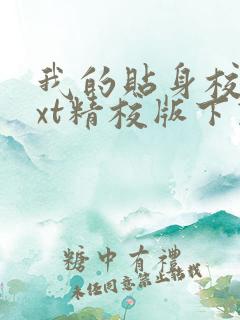 我的貼身校
xt精校版下
糖中有禮
未经同意禁止转载